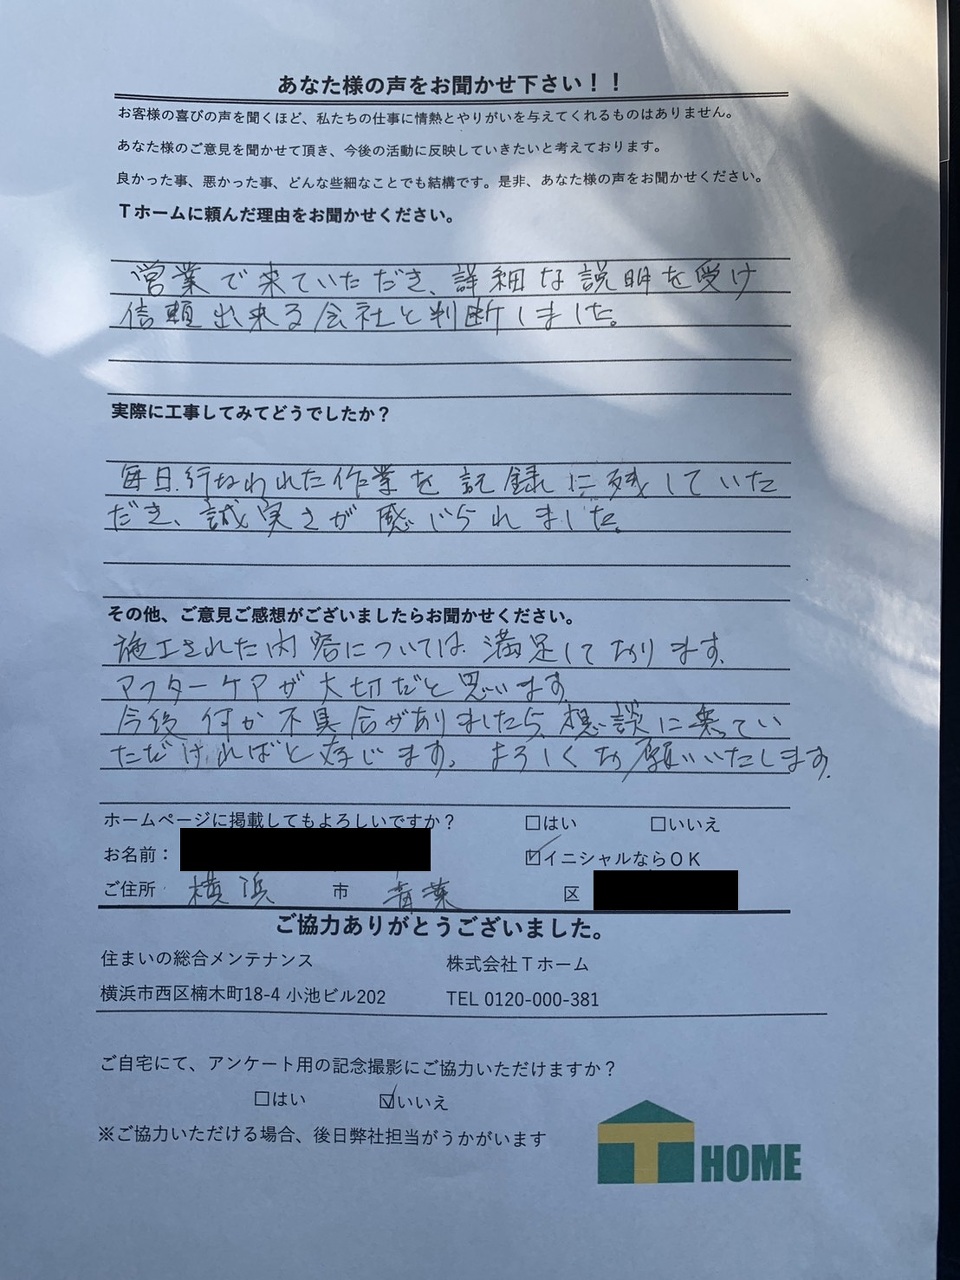 あなた様の声をお聞かせ下さい！！
お客様の喜びの声を聞くほど、私たちの仕事に情熱とやりがいを与えてくれるものはありません。
あなた様のご意見を聞かせて頂き、今後の活動に反映していきたいと考えております。
良かった事、悪かった事、どんな些細なことでも結構です。是非、あなた様の声をお聞かせください。
Ｔホームに頼んだ理由をお聞かせください。
営業で来ていただき、詳細な説明を受け
信頼出来る会社と判断しました。
実際に工事してみてどうでしたか？
毎日行なわれた作業を記録に残していた
だき、誠実さが感じられました。
その他、ご意見ご感想がございましたらお聞かせください。
施工された内容については満足しております。
アフターケアが大切だと思います
今後何か不具合がありましたら想談に乗てい
ただければと存じます。よろしくお願いいたします。
ホームページに掲載してもよろしいですか？ □はい □いいえ
お名前： ☑イニシャルならＯＫ
ご住所 横浜 市 青葉 区
ご協力ありがとうございました。
住まいの総合メンテナンス 株式会社Ｔホーム
横浜市西区楠木町18-4 小池ビル202 TEL 0120-000-381
ご自宅にて、アンケート用の記念撮影にご協力いただけますか？
□はい ☑いいえ
※ご協力いただける場合、後日弊社担当がうかがいます
T HOME